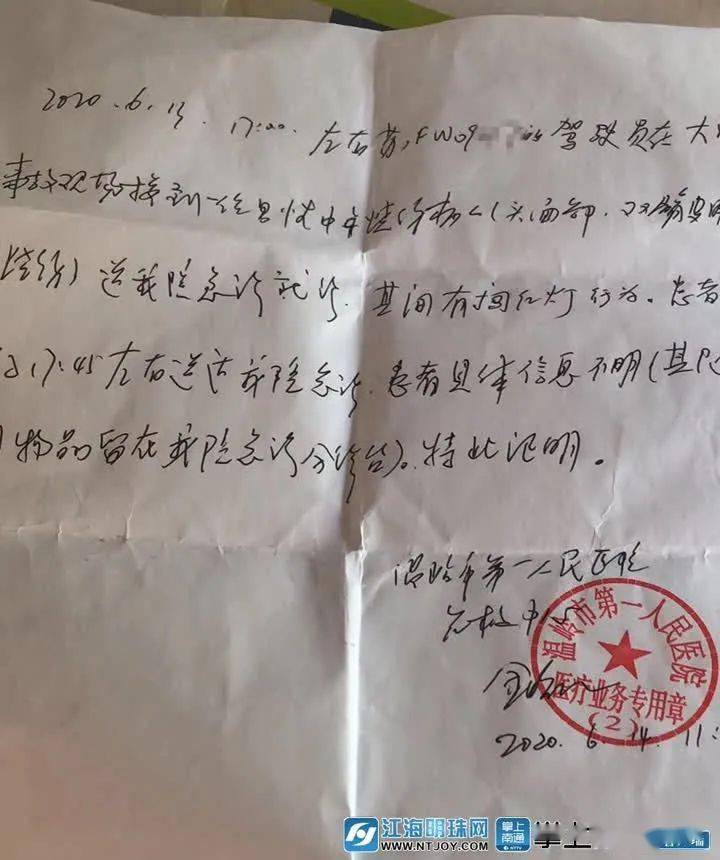 2020.6.13. 17:00. 左右苏FW09 的驾驶员在大
事故现场接到一位 烧伤病人(头面部、双
烧伤)送我院急诊就诊.其间有闯红灯行为。患者
17:45左右送达我院急诊.患者具体信息不明(其
物品留在我院急诊分诊台)。特此证明。
温岭市第一人民医院
急救中心
2020.6.14. 11:
温岭市第一人民医院
医疗业务专用章
(2)
江海明珠网
WWW.NTJOY.COM
掌上南通
掌上